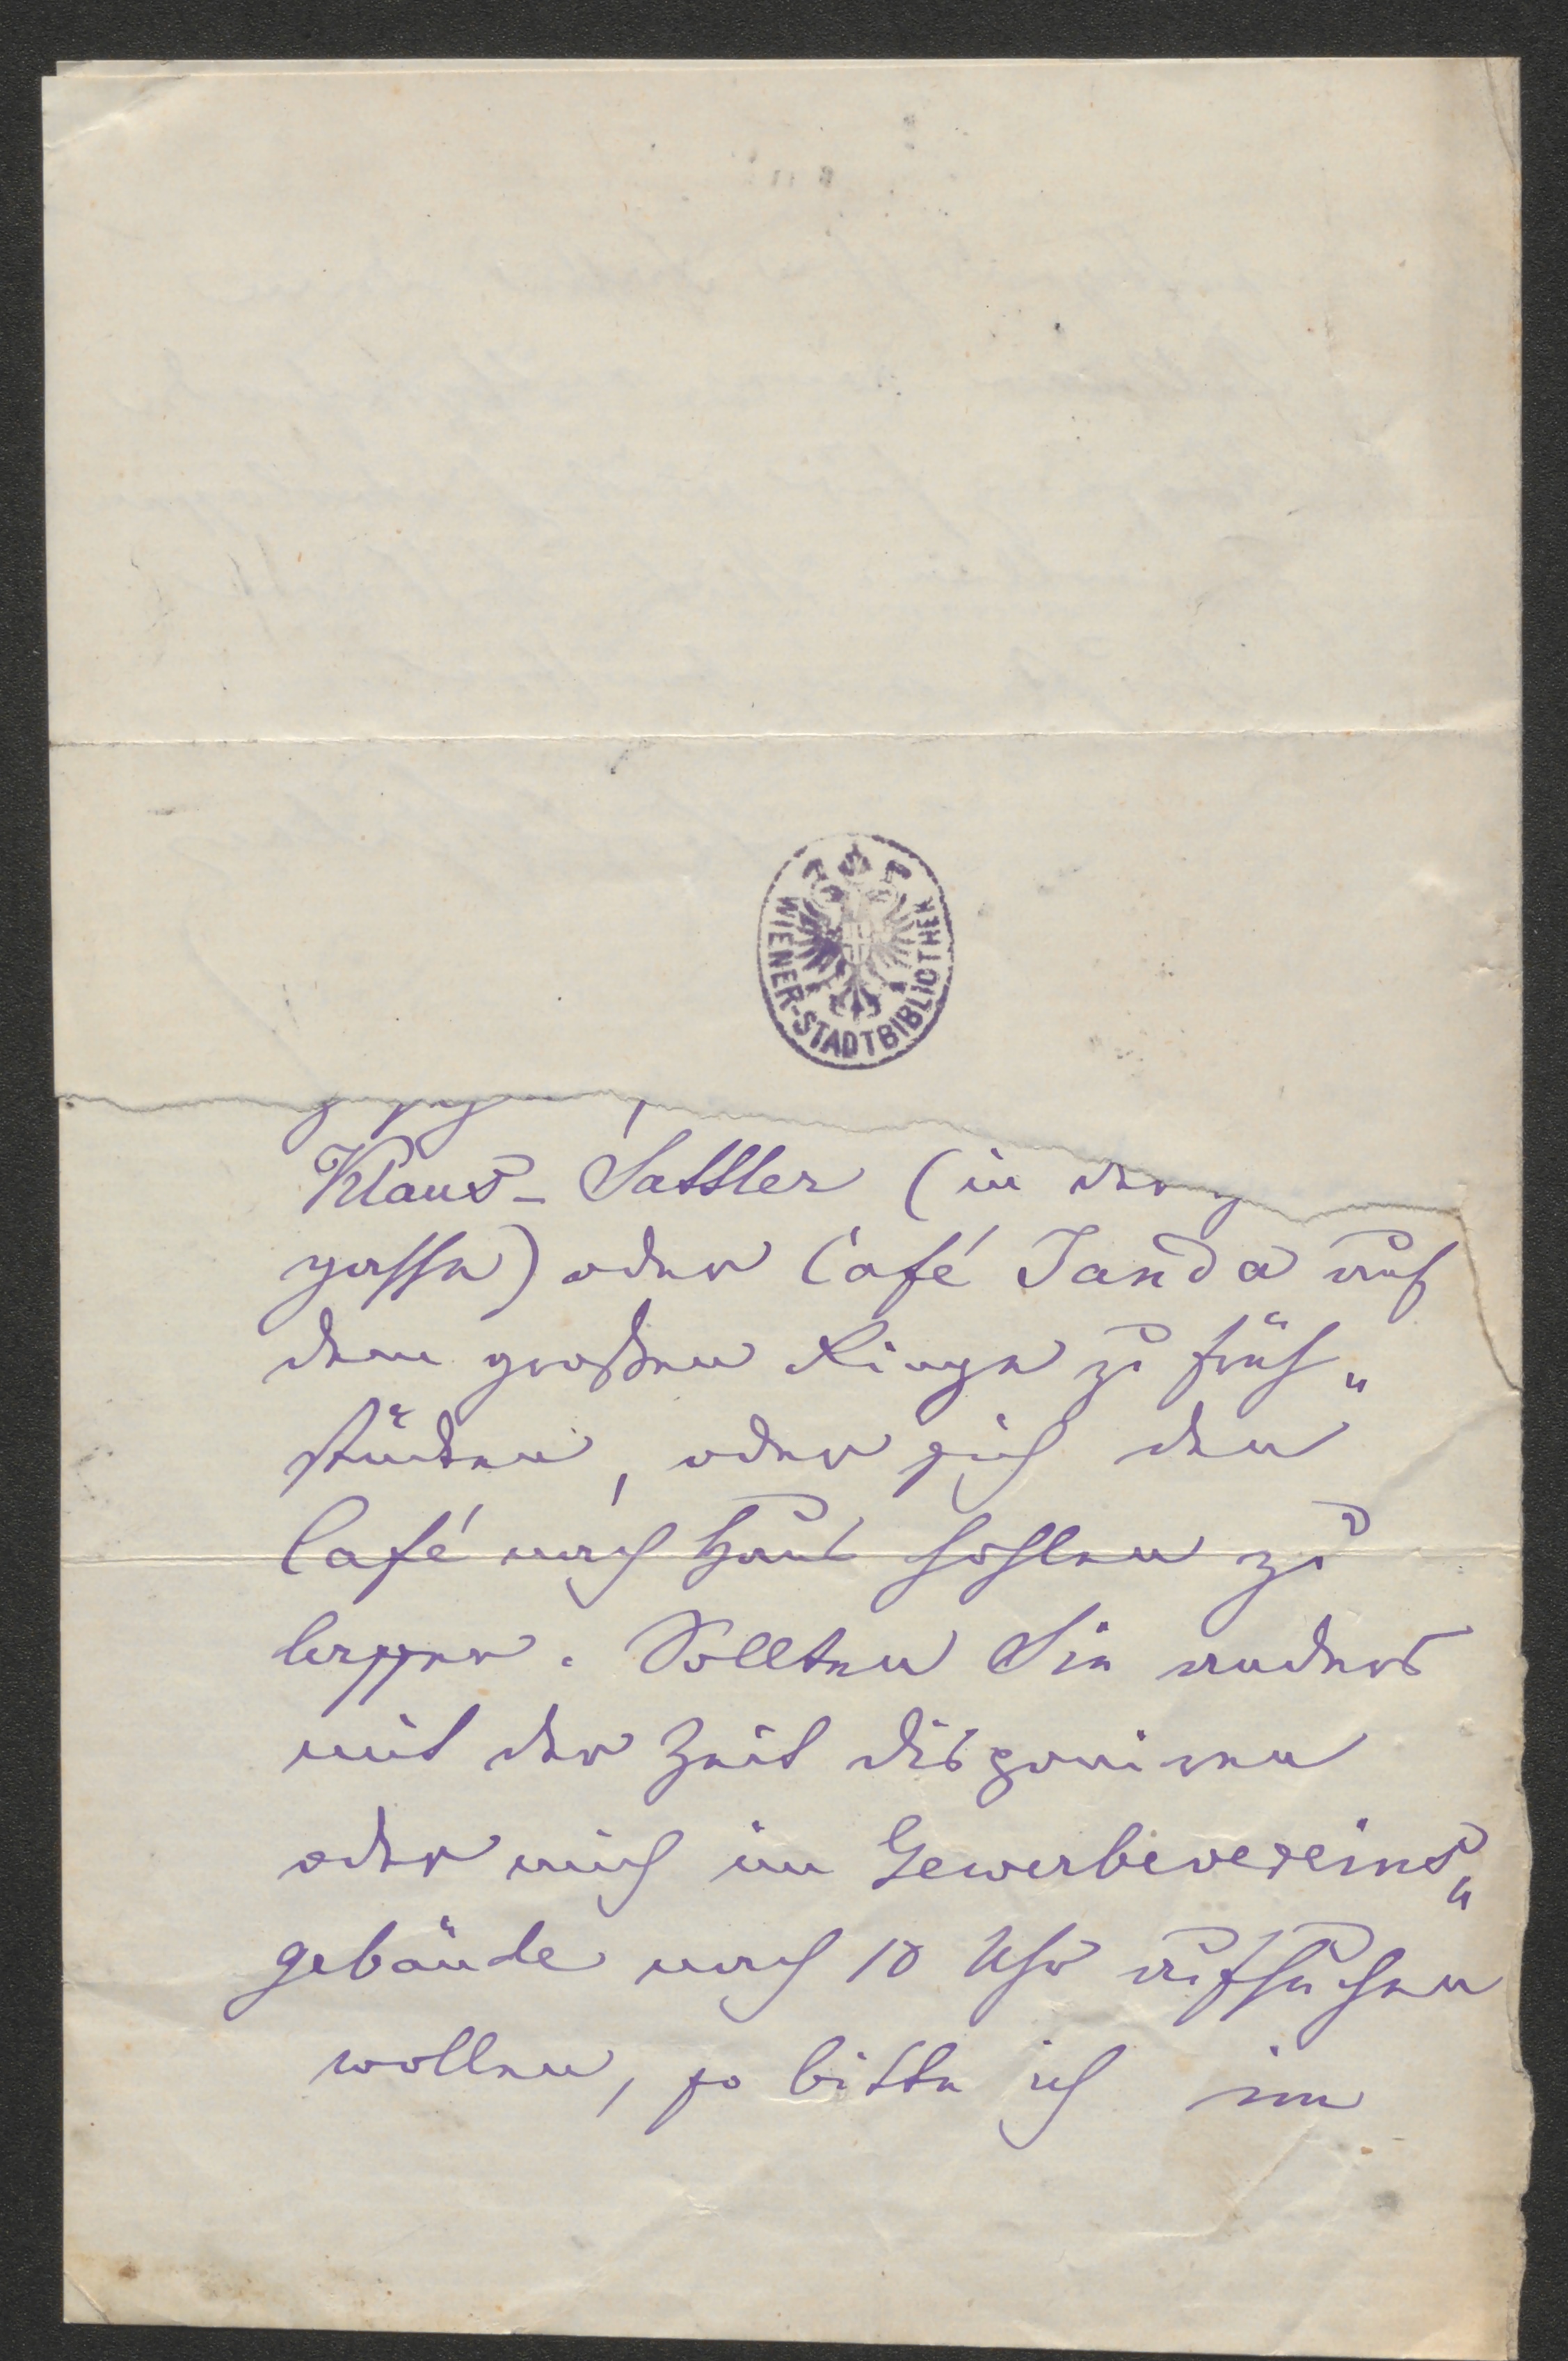 WIENER-STADTBIBLIOTHEK
Klaus-Sattler (in der
gasse) oder Café Janda auf
dem großen Ringe zu früh„
stücken, oder sich den
Café nach Haus hohlen zu
lassen. Sollten Sie anders
mit der Zeit disponiren
oder mich im Gewerbevereins„
gebäude nach 10 Uhr aufsuchen
wollen, so bitte ich im